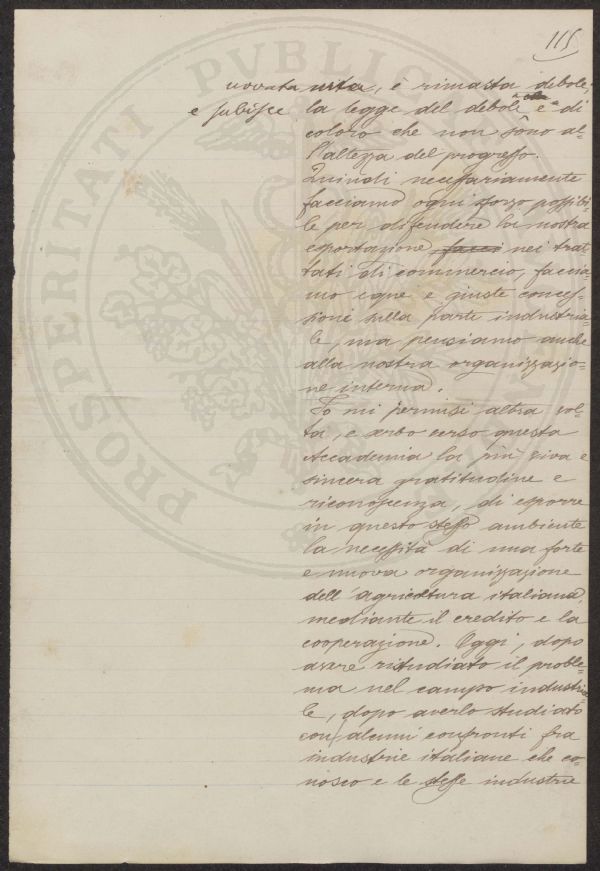 115
novata vita, è rimasta debole,
e subisce la legge del debole e di
coloro che non sono al-
l'altezza del progresso.
Quindi necessariamente
facciamo ogni sforzo possibi-
le per difendere la nostra
esportazione facci nei trat-
tati di commercio, faccia-
mo eque e giuste conces-
sioni sulla parte industria-
le, ma pensiamo anche
alla nostra organizzazio-
ne interna.
Io mi permisi altra vol-
ta, e serbo verso questa
Accademia la più viva e
sincera gratitudine e
riconoscenza, di esporre
in questo stesso ambiente
la necessità di una forte
e nuova organizzazione
dell'agricoltura italiana,
mediante il credito e la
cooperazione. Oggi, dopo
avere ristudiato il proble-
ma nel campo industria-
le, dopo averlo studiato
con alcuni confronti fra
industrie italiane che co-
nosco e le stesse industrie
PROSPERITATI PVBLIC